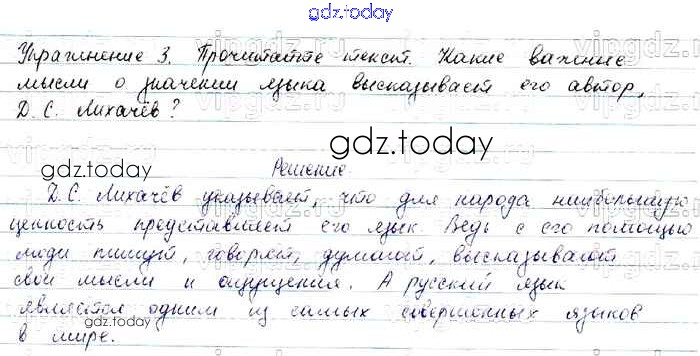 gdz.today
Упражнение 3. Прочитайте текст. Какие важные
мысли о значении языка высказывает его автор,
Д. С. Лихачёв?
gdz.today
gdz.today
Решение.
Д.С. Лихачёв указывает, что для народа наибольшую
ценность представляет его язык. Ведь с его помощью
люди пишут, говорят, думают, высказывают
свои мысли и ощущения. А русский язык
является одним из самых совершенных языков
gdz.today
в мире.